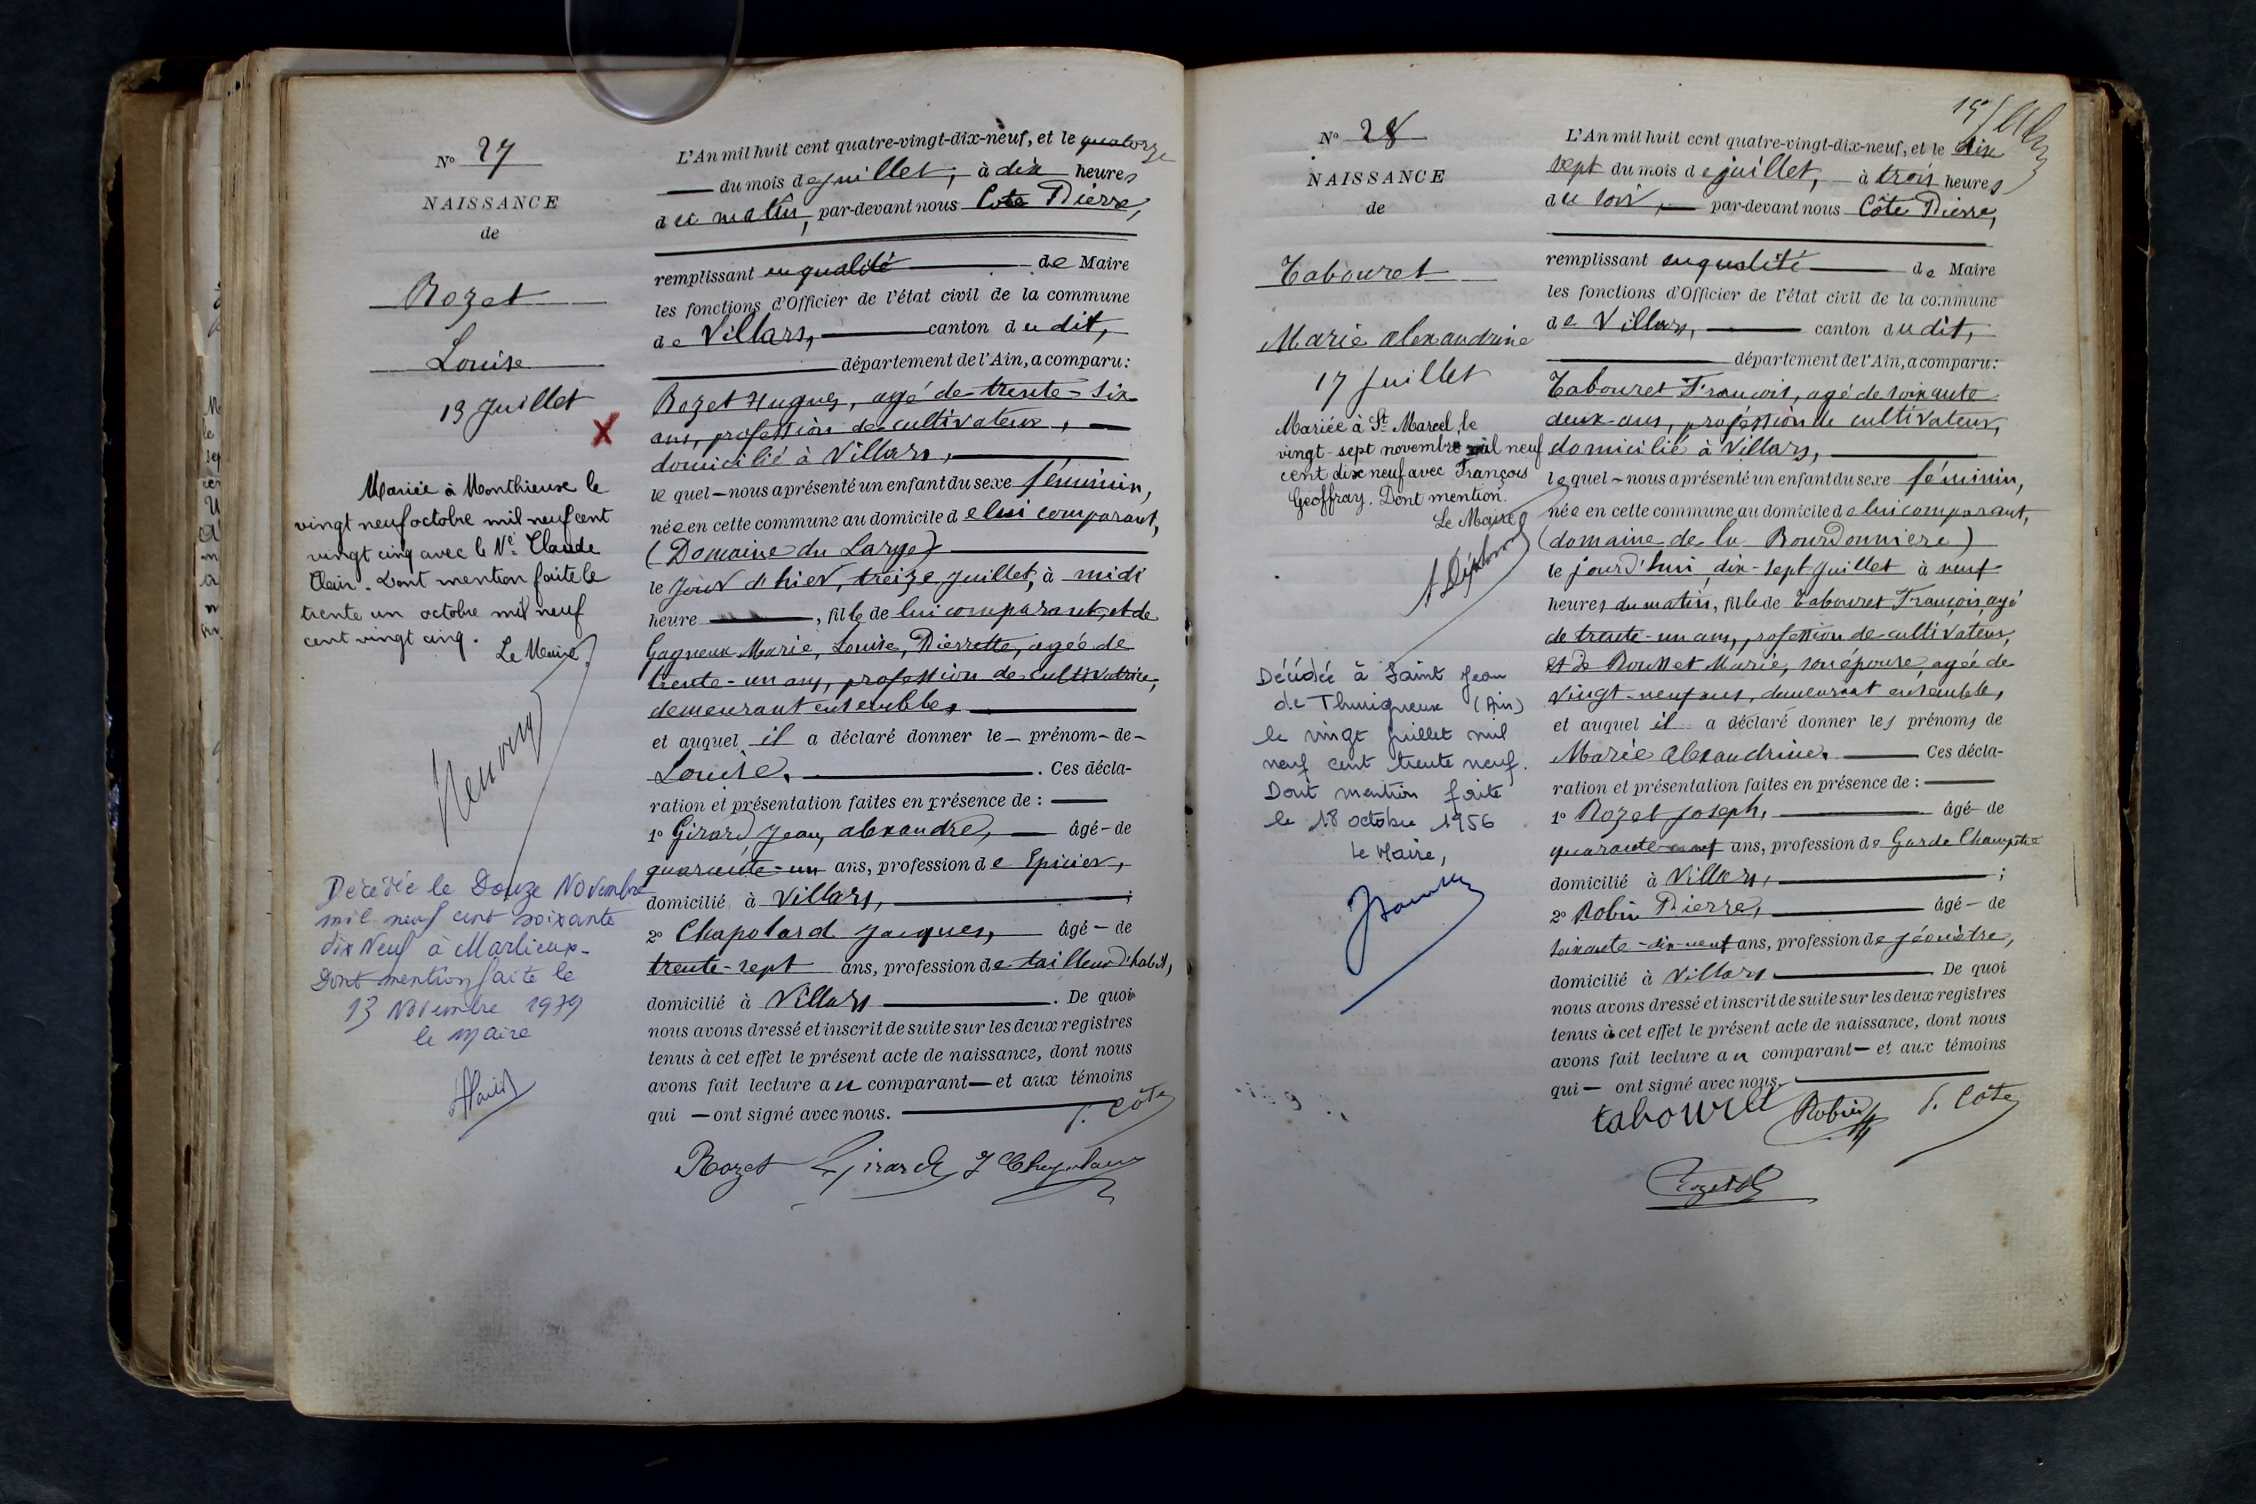 Nº 27
NAISSANCE
de
Rozet
Louise
13 Juillet
X
Mariée à Monthieux le
vingt neuf octobre mil neuf cent
vingt cinq avec le Né Claude
Clair. Dont mention faite le
trente un octobre mil neuf
cent vingt cinq.
Le Maire
Décédée le Douze Novembre
mil neuf cent soixante
dix Neuf à Marlieux-
Dont mention faite le
13 Novembre 1979
le Maire
L'An mil huit cent quatre-vingt-dix-neuf, et le quatorze
du mois de juillet, à dix heures
du matin, par-devant nous Cote Pierre,
remplissant en qualité de Maire
les fonctions d'Officier de l'état civil de la commune
de Villars, canton du dit,
département de l'Ain, a comparu:
Rozet Hugues, agé de trente-six
ans, profession de cultivateur,
domicilié à Villars,
le quel - nous a présenté un enfant du sexe féminin,
née en cette commune au domicile de lui comparant,
(Domaine du Large)
le jour d'hier, treize juillet, à midi
heure, fille de lui comparant, et de
Gagneux Marie, Louise, Pierrette, agée de
trente-un ans, profession de cultivatrice,
demeurant ensemble,
et auquel il a déclaré donner le - prénom - de -
Louise. Ces décla-
ration et présentation faites en présence de :
1º Girard Jean, alexandre, âgé - de
quarante-un ans, profession de Epicier,
domicilié à Villars, ;
2º Chapolard Jacques, âgé - de
trente-sept ans, profession de tailleur d'habits,
domicilié à Villars. De quoi
nous avons dressé et inscrit de suite sur les deux registres
tenus à cet effet le présent acte de naissance, dont nous
avons fait lecture au comparant - et aux témoins
qui - ont signé avec nous.
P. Côte
Rozet Girard J Chapolard
Nº 28
NAISSANCE
de
Tabouret
Marie alexandrine
17 Juillet
Mariée à St Marcel, le
vingt-sept novembre mil neuf
cent dix neuf avec François
Geoffray. Dont mention.
Le Maire
Décédée à Saint Jean
de Thurigneux (Ain)
le vingt juillet mil
neuf cent trente neuf.
Dont mention faite
le 18 octobre 1956
Le Maire,
L'An mil huit cent quatre-vingt-dix-neuf, et le dix
sept du mois de juillet, à trois heures
du soir, par-devant nous Côte Pierre,
remplissant en qualité de Maire
les fonctions d'Officier de l'état civil de la commune
de Villars, canton du dit,
département de l'Ain, a comparu:
Tabouret François, agé de soixante
deux ans, profession de cultivateur,
domicilié à Villars,
le quel - nous a présenté un enfant du sexe féminin,
née en cette commune au domicile de lui comparant,
(domaine de la Bourdonniere)
le jourd'hui dix-sept juillet à neuf
heures du matin, fille de Tabouret François, agé
de trente-un ans, profession de cultivateur,
et de Rousset Marie, son épouse, agée de
vingt-neuf ans, demeurant ensemble,
et auquel il a déclaré donner les prénoms de
Marie alexandrine. Ces décla-
ration et présentation faites en présence de :
1º Rozet Joseph, âgé - de
quarante-neuf ans, profession de Garde Champêtre
domicilié à Villars, ;
2º Robin Pierre, âgé - de
soixante-dix-neuf ans, profession de géomètre,
domicilié à Villars De quoi
nous avons dressé et inscrit de suite sur les deux registres
tenus à cet effet le présent acte de naissance, dont nous
avons fait lecture au comparant - et aux témoins
qui - ont signé avec nous.
tabouret Robin P. Côte